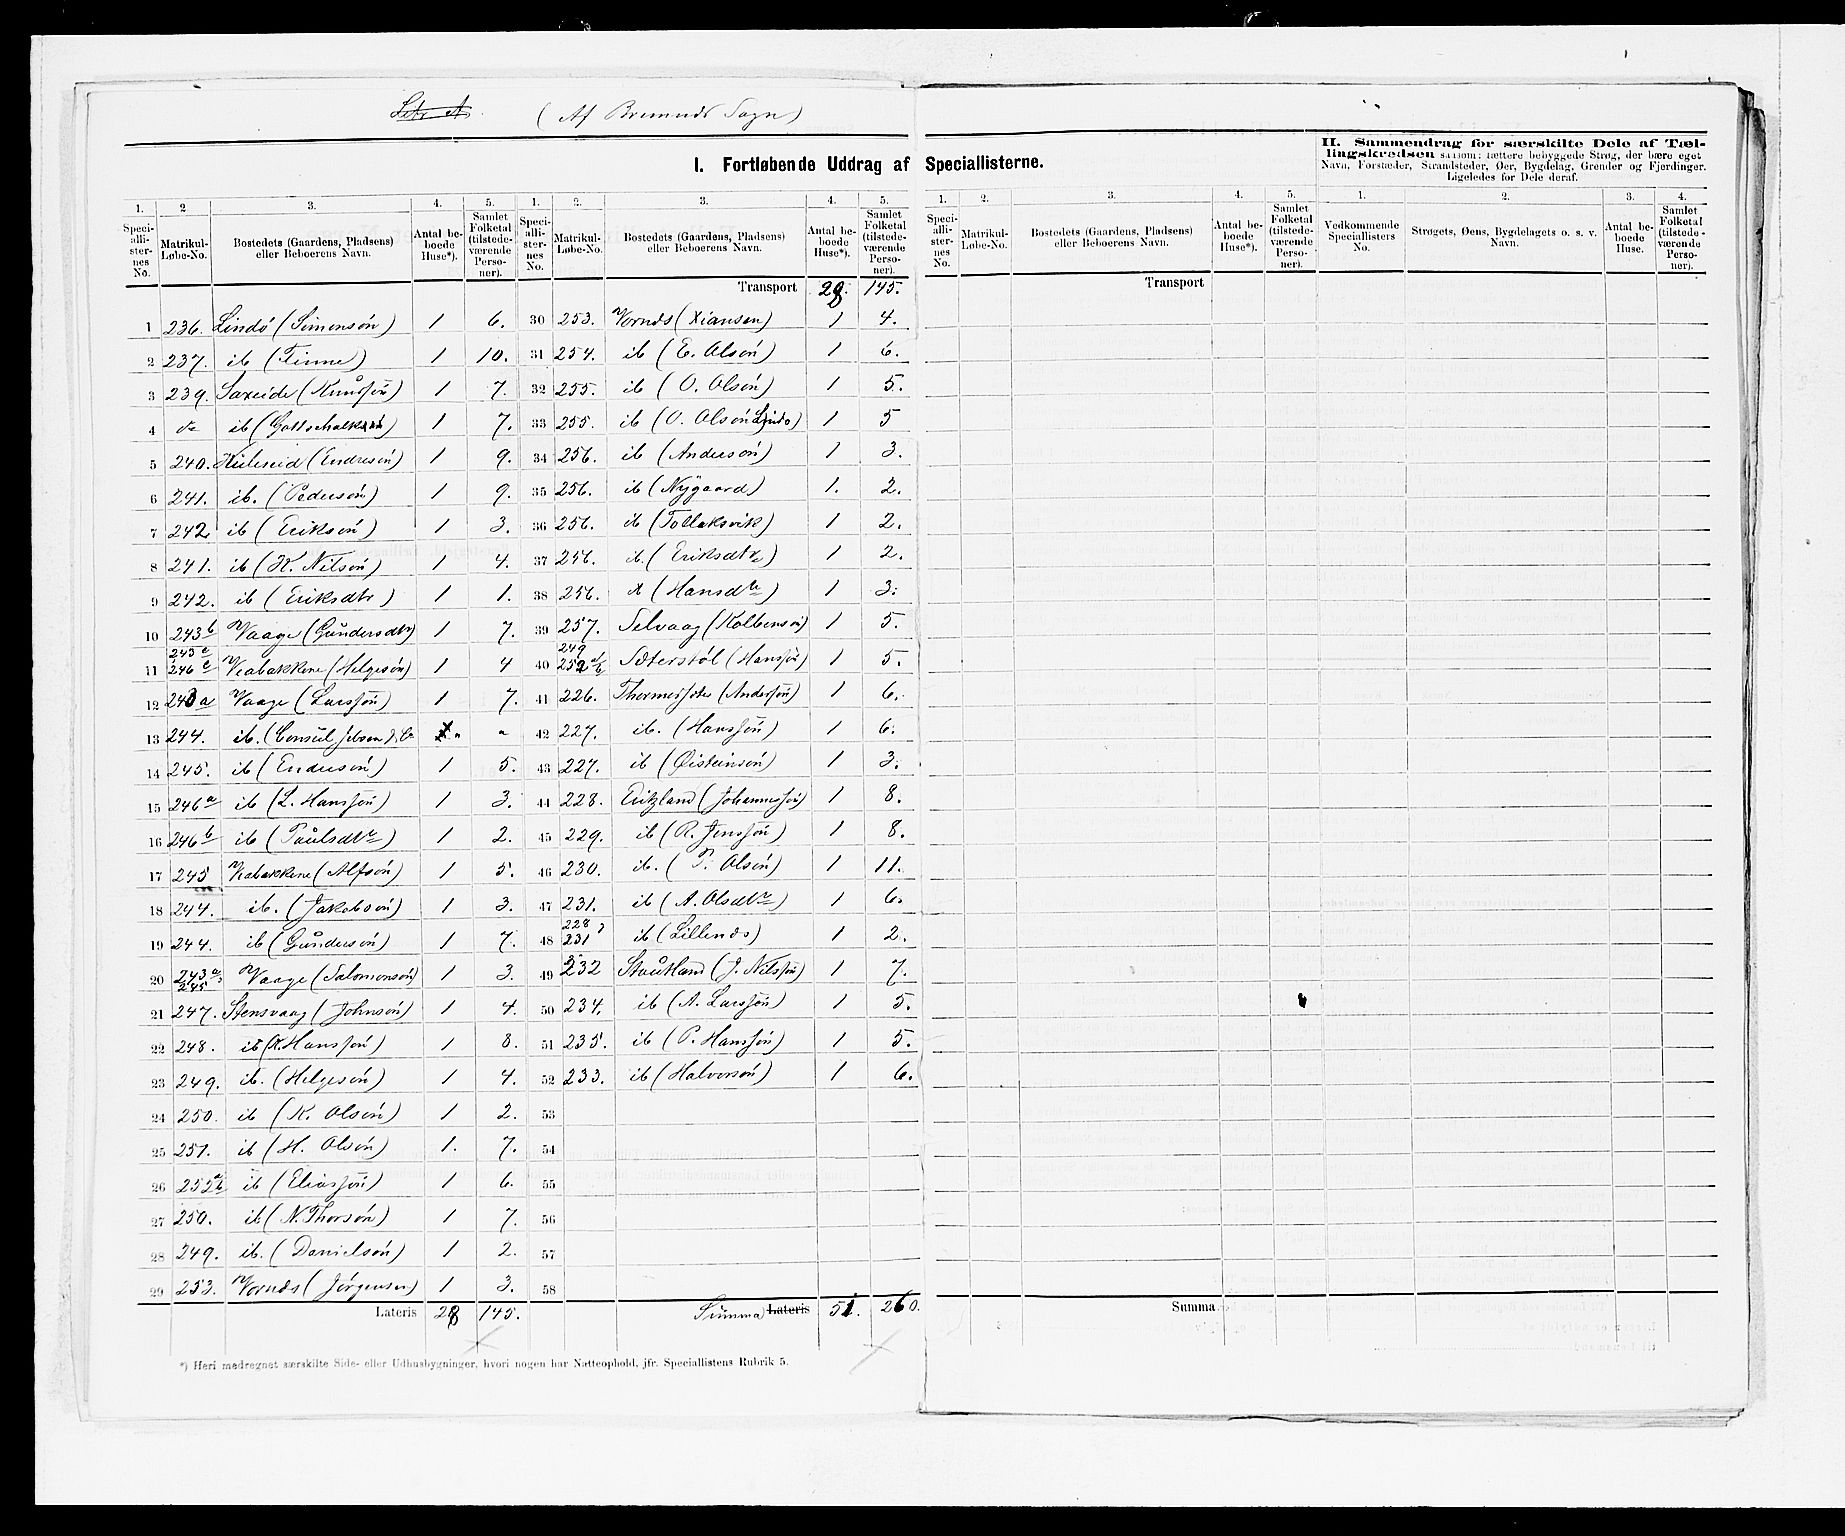 Litr A. (Af Bremnes Sogn)
I. Fortløbende Uddrag af Speciallisterne.
II. Sammendrag for særskilte Dele af Tæl-
lingskredsen saasom: tættere bebyggede Strøg, der bære eget
Navn, Forstæder, Strandsteder, Øer, Bygdelag, Grender og Fjerdinger.
Ligeledes for Dele deraf.
1. 2. 3. 4. 5. 1. 2. 3. 4. 5. 1. 2. 3. 4. 5. 1. 2. 3. 4.
Speciallisternes No. Matrikul-Løbe-No. Bostedets (Gaardens, Pladsens) eller Beboerens Navn. Antal beboede Huse*). Samlet Folketal (tilstedeværende Personer).
Speciallisternes No. Matrikul-Løbe-No. Bostedets (Gaardens, Pladsens) eller Beboerens Navn. Antal beboede Huse*). Samlet Folketal (tilstedeværende Personer).
Speciallisternes No. Matrikul-Løbe-No. Bostedets (Gaardens, Pladsens) eller Beboerens Navn. Antal beboede Huse*). Samlet Folketal (tilstedeværende Personer).
Vedkommende Speciallisters No. Strøgets, Øens, Bygdelagets o. s. v. Navn. Antal beboede Huse. Samlet Folketal (tilstedeværende Personer).
Transport 28. 145. Transport
1 236. Lindö (Simonsön) 1 6. 30 253. Vornds (Xiansen) 1 4.
2 237. ib (Finne) 1 10. 31 254. ib (E. Olsön) 1 6.
3 239. Saxeide (Knudsön) 1 7. 32 255. ib (O. Olsön) 1 5.
4 do ib (Gottschalksön) 1 7. 33 255. ib (O. Olsön Lindo) 1 5
5 240. (Endresön) 1 9. 34 256. ib (Andersön) 1 3.
6 241. ib. (Pedersön) 1 9. 35 256. ib (Nygaard) 1. 2.
7 242 ib (Eriksön) 1 3. 36 256. ib (Tollaksvik) 1 2.
8 241. ib (K. Nilsön) 1 4. 37 256. ib. (Eriksdtr) 1 2.
9 242. ib (Eriksdtr) 1 1. 38 256. ib (Hansdtr) 1 3.
10 243b Vaage (Gundersdtr) 1 7. 39 257. Selvaag (Kolbensön) 1 5.
11 243c 246c Veabakkene (Helgesön) 1 4 40 249 252 a/b Sæterstöl (Hanssön) 1 5.
12 243a Vaage (Larssön) 1 7. 41 226. (Anderssön) 1 6.
13 244. ib. (Consul Jebsen & Co " " 42 227. ib. (Hanssön) 1 6.
14 245. ib (Endersön) 1 5. 43 227. ib (Øisteinsön) 1 3.
15 246a ib (L. Hanssön) 1 3. 44 228. Eritzland (Johannessön) 1 8.
16 246b ib (Paulsdtr) 1 2. 45 229. ib (R. Jenssön) 1 8.
17 245 Veabakkene (Alfsön) 1 5. 46 230. ib. (T. Olsön) 1 11.
18 244. ib. (Jakobsön) 1 3. 47 231. ib (A. Olsdtr) 1 6.
19 244. ib (Gundersön) 1 7. 48 228 231 ib (Lillenes) 1 2.
20 243a 245 Vaage (Salomonsön) 1 3. 49 232 Stautland (J. Nilssön) 1 7.
21 247. Stensvaag (Johnsön) 1 4. 50 234. ib (A. Larssön) 1 5.
22 248. ib (K. Hanssön) 1 8. 51 235. ib (P. Hanssön) 1 5.
23 249. ib. (Helgesön) 1 4. 52 233. ib (Halvorsön) 1 6.
24 250. ib (K. Olsön) 1 2. 53
25 251. ib (H. Olsön) 1. 7. 54
26 252 a/b ib (Eliassön) 1 6. 55
27 250. ib (N. Thorsön) 1 7. 56
28 249. ib. (Danielsön) 1 2. 57
29 253. Vornds (Jörgensen) 1 3. 58
Lateris 28 145. Summa Lateris 51. 260. Summa
*) Heri medregnet særskilte Side- eller Udhusbygninger, hvori nogen har Natteophold, jfr. Speciallistens Rubrik 5.